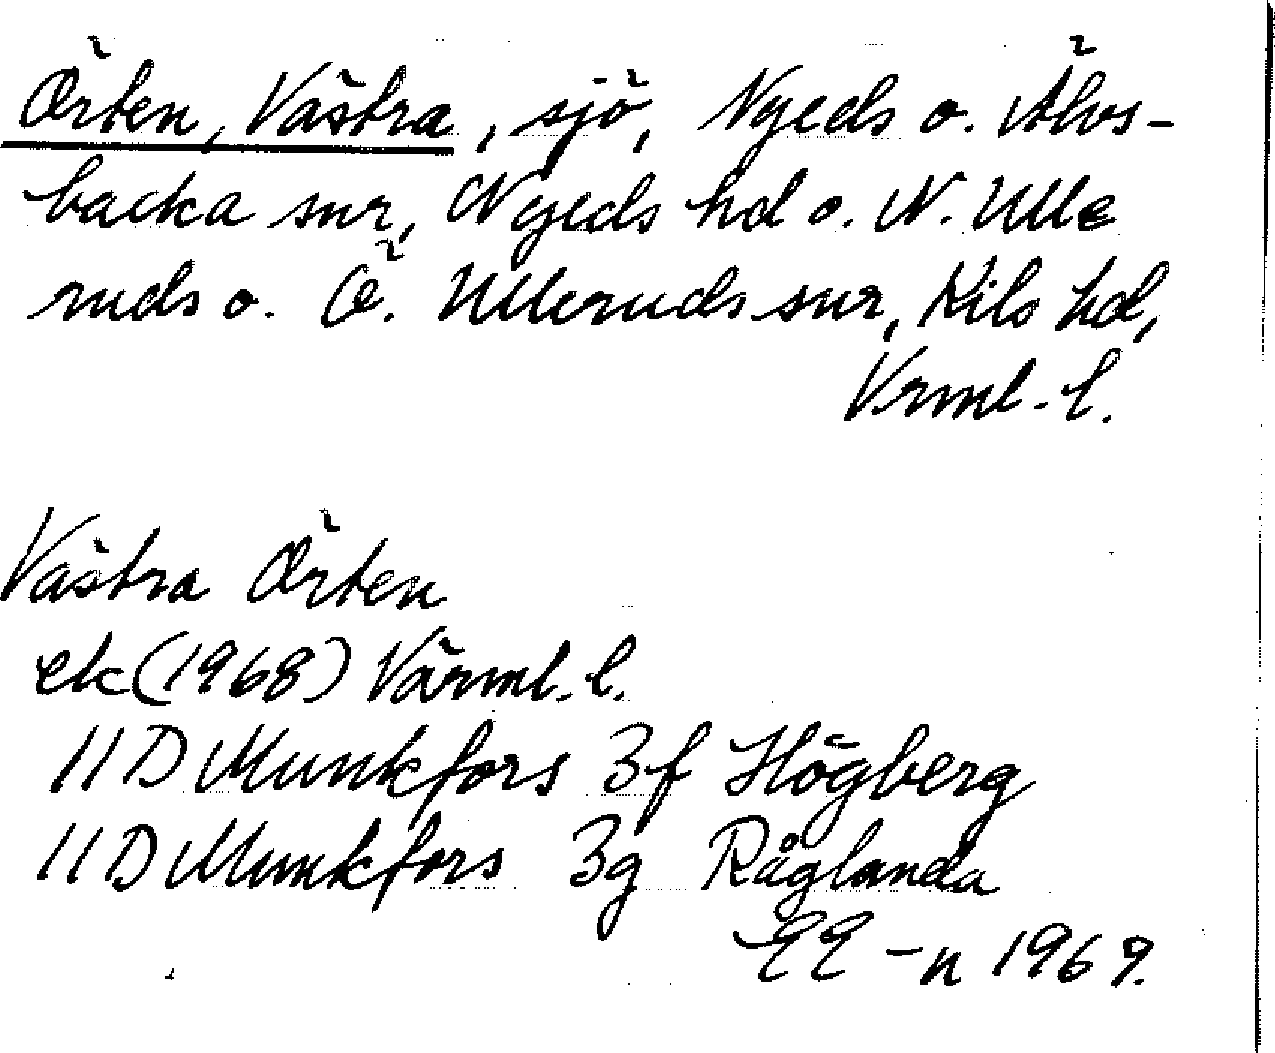 Örten, Västra, sjö, Nyeds o. Älvs-
backa snr, Nyeds hd o. N. Ulle
ruds o. Ö. Ulleruds snr, Kils hd,
Vrml. l.
Västra Örten
ek (1968) Värml. l.
11D Munkfors 3f Högberg
11D Munkfors 3g Råglanda
EE-n 1969.